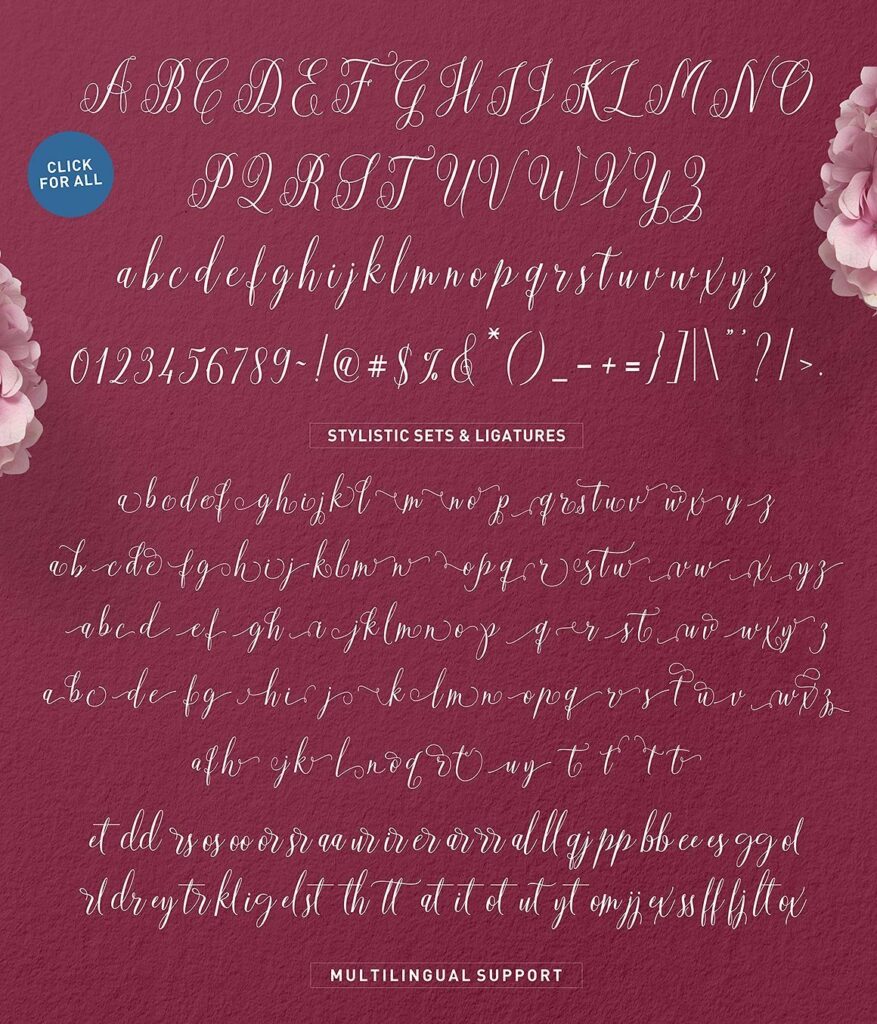 A B C D E F G H I J K L M N O
CLICK
FOR ALL
P Q R S T U V W X Y Z
a b c d e f g h i j k l m n o p q r s t u v w x y z
0 1 2 3 4 5 6 7 8 9 ~ ! @ # $ % & * ( ) _ - + = } ] | \ " ' ? / > .
STYLISTIC SETS & LIGATURES
a b c d e f g h i j k l m n o p q r s t u v w x y z
a b c d e f g h i j k l m n o p q r s t u v w x y z
a b c d e f g h i j k l m n o p q r s t u v w x y z
a b c d e f g h i j k l m n o p q r s t u v w x y z
a f h j k l n o q r t u y t t t t
et dd rs os oo or sr aa ur ir er ar rr al ll qj pp bb ee es gg ol
rl dr ey tr kl ig el st th tt at it ot ut yt om jj ex ss ff fj lt ox
MULTILINGUAL SUPPORT